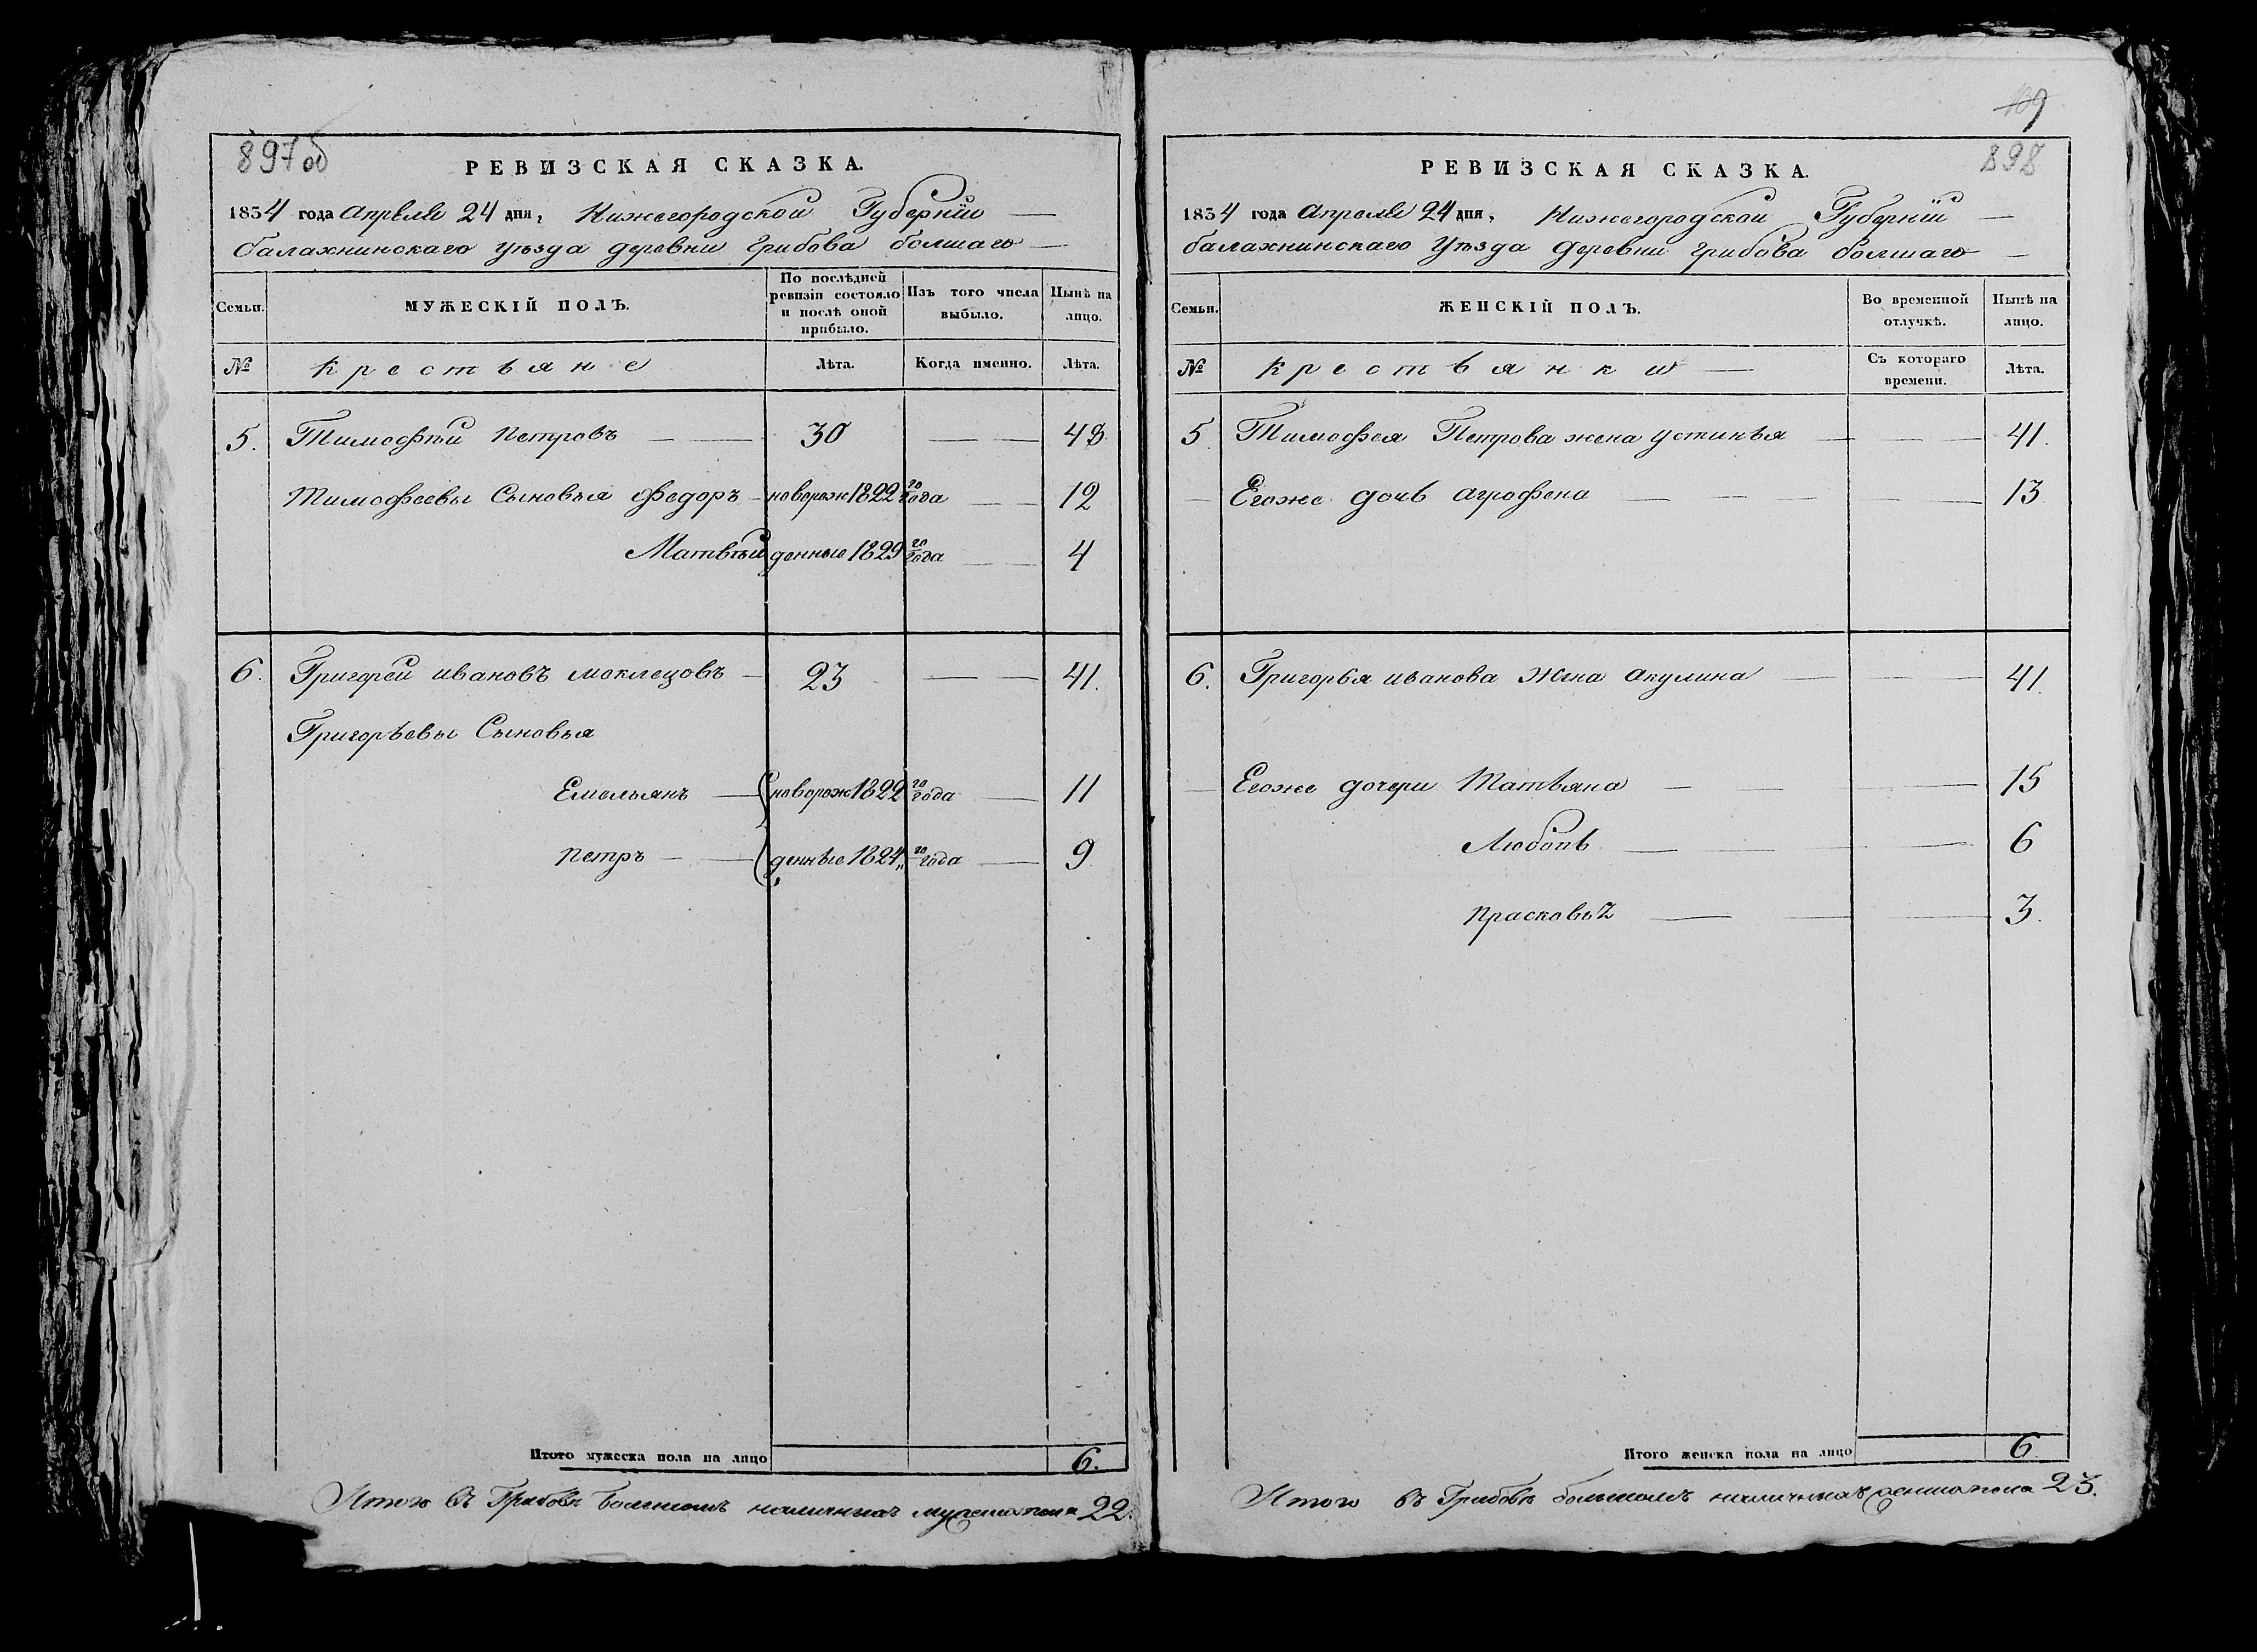 897 об
РЕВИЗСКАЯ СКАЗКА.
1834 года Апреля 24 дня, Нижегородской Губернїи
балахнинскаго уѣзда деревни Грибова болшаго
Семьи.
МУЖЕСКІЙ ПОЛЪ.
По послѣдней ревизіи состояло и послѣ оной прибыло.
Изъ того числа выбыло.
Нынѣ на лицо.
№ крестьяне Лѣта. Когда именно. Лѣта.
5. Тимофѣй Петровъ 30 48
Тимофеевы Сыновья Федоръ новорож 1822 го года 12
Матвѣй денные 1829 го года 4
6. Григорей ивановъ моклецовъ 23 41.
Григорьевы Сыновья
Емельянъ новорож 1822 го года 11
петръ денные 1824 го года 9
Итого мужеска пола на лицо 6.
Итого въ Грибовѣ Болшомъ наличныхъ мужеска пола 22.
109
898
РЕВИЗСКАЯ СКАЗКА.
1834 года Апреля 24 дня, Нижегородской Губернїи
балахнинскаго Уѣзда деревни грибова болшаго
Семьи.
ЖЕНСКІЙ ПОЛЪ.
Во временной отлучкѣ.
Нынѣ на лицо.
№ крестьянки Съ котораго времени. Лѣта.
5 Тимофея Петрова жена устинья 41.
Егоже дочь агрофена 13
6. Григорья иванова Жена акулина 41.
Егоже дочери Татьяна 15
Любовь 6
прасковья 3.
Итого женска пола на лицо 6
Итого въ Грибовѣ большомъ наличныхъ женска пола 23.